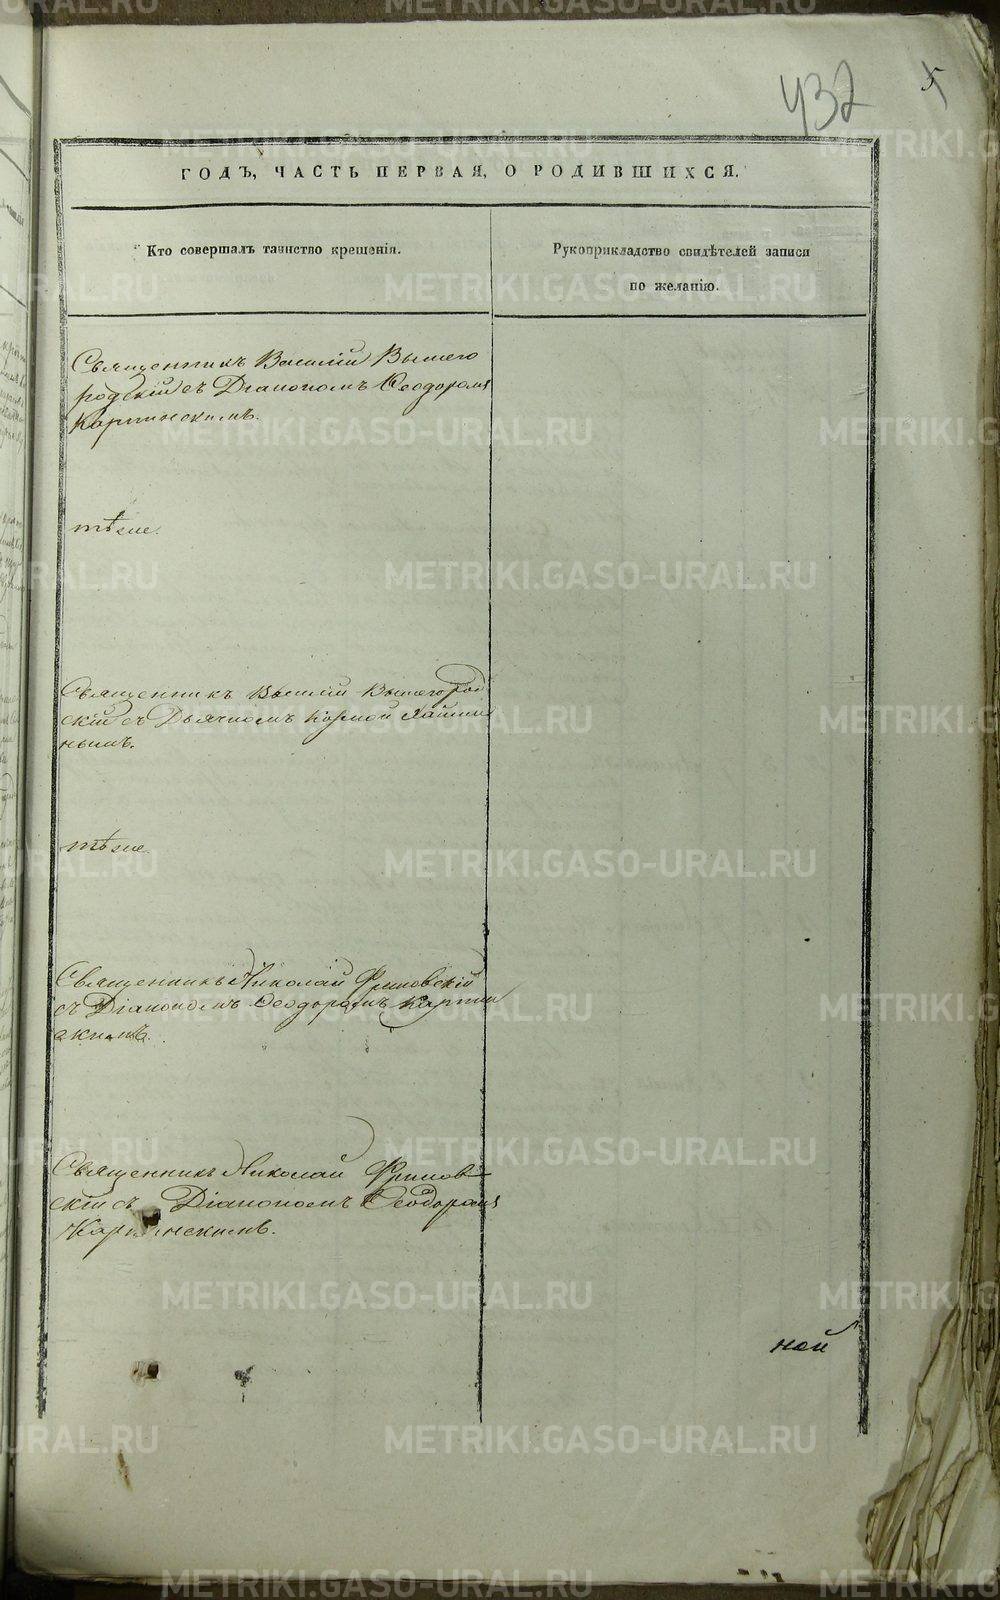 432
5
ГОДЪ, ЧАСТЬ ПЕРВАЯ, О РОДИВШИХСЯ.
Кто совершалъ таинство крещенія.
Рукоприкладство свидѣтелей записи
по желанію.
Священникъ Василій Вышего
родскій съ Діакономъ Ѳеодоромъ
Карпинскимъ.
тѣже.
Священникъ Василій Вышегород
скій съ Дьячкомъ
нымъ.
тѣже
Священникъ Николай
съ Діакономъ Ѳеодоромъ Карпин
скимъ.
Священникъ Николай
скій съ Діакономъ Ѳеодоромъ
Карпинскимъ.
ной
METRIKI.GASO-URAL.RU